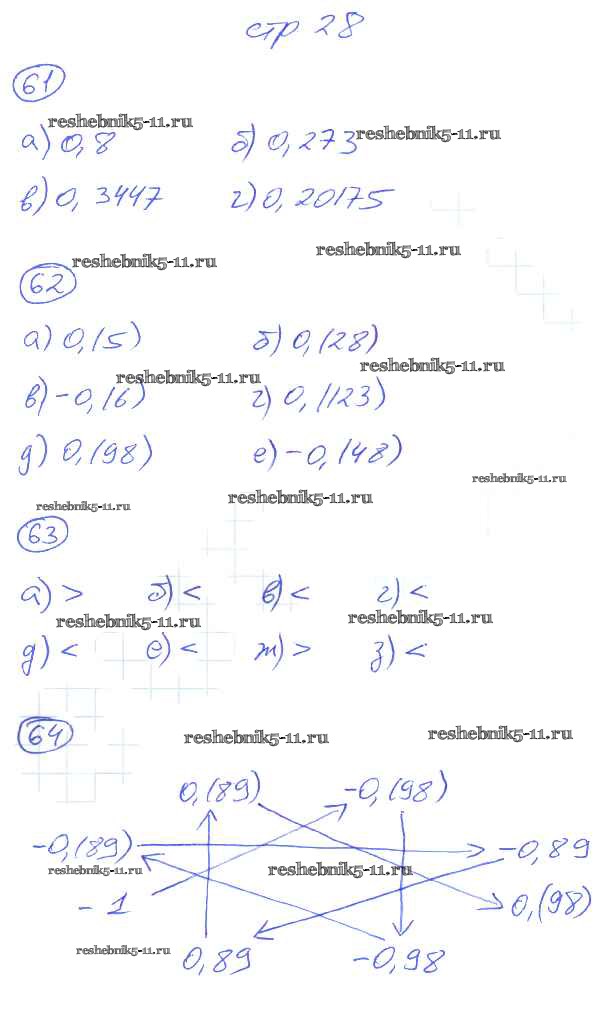 стр 28
61
reshebnik5-11.ru
а) 0,8 б) 0,273 reshebnik5-11.ru
в) 0,3447 г) 0,20175
reshebnik5-11.ru reshebnik5-11.ru
62
а) 0,(5) б) 0,(28)
reshebnik5-11.ru reshebnik5-11.ru
в) -0,(6) г) 0,(123)
д) 0,(98) е) -0,(48)
reshebnik5-11.ru reshebnik5-11.ru reshebnik5-11.ru
63
а) > б) < в) < г) <
reshebnik5-11.ru reshebnik5-11.ru
д) < е) < ж) > з) <
64
reshebnik5-11.ru reshebnik5-11.ru
0,(89) -0,(98)
-0,(89) -0,89
reshebnik5-11.ru reshebnik5-11.ru
-1 0,(98)
reshebnik5-11.ru
0,89 -0,98